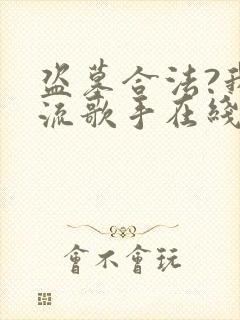 盗墓合法?我
流歌手在綫
會不會玩